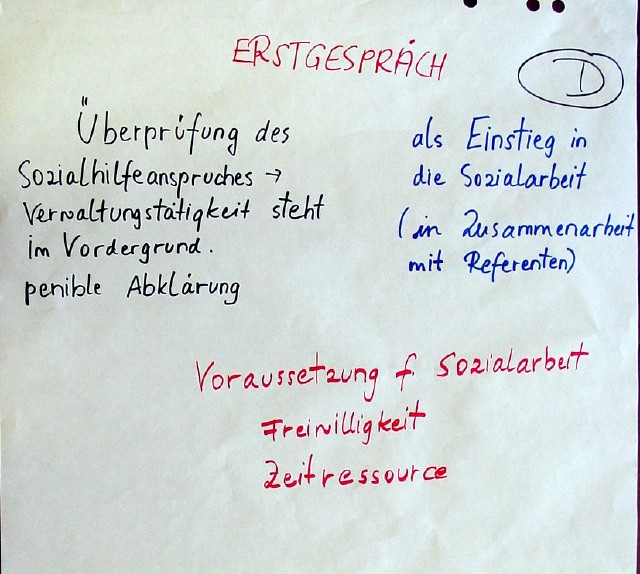 ERSTGESPRÄCH
D
Überprüfung des
Sozialhilfeanspruches →
Verwaltungstätigkeit steht
im Vordergrund.
penible Abklärung
als Einstieg in
die Sozialarbeit
(in Zusammenarbeit
mit Referenten)
Voraussetzung f. Sozialarbeit
Freiwilligkeit
Zeitressource